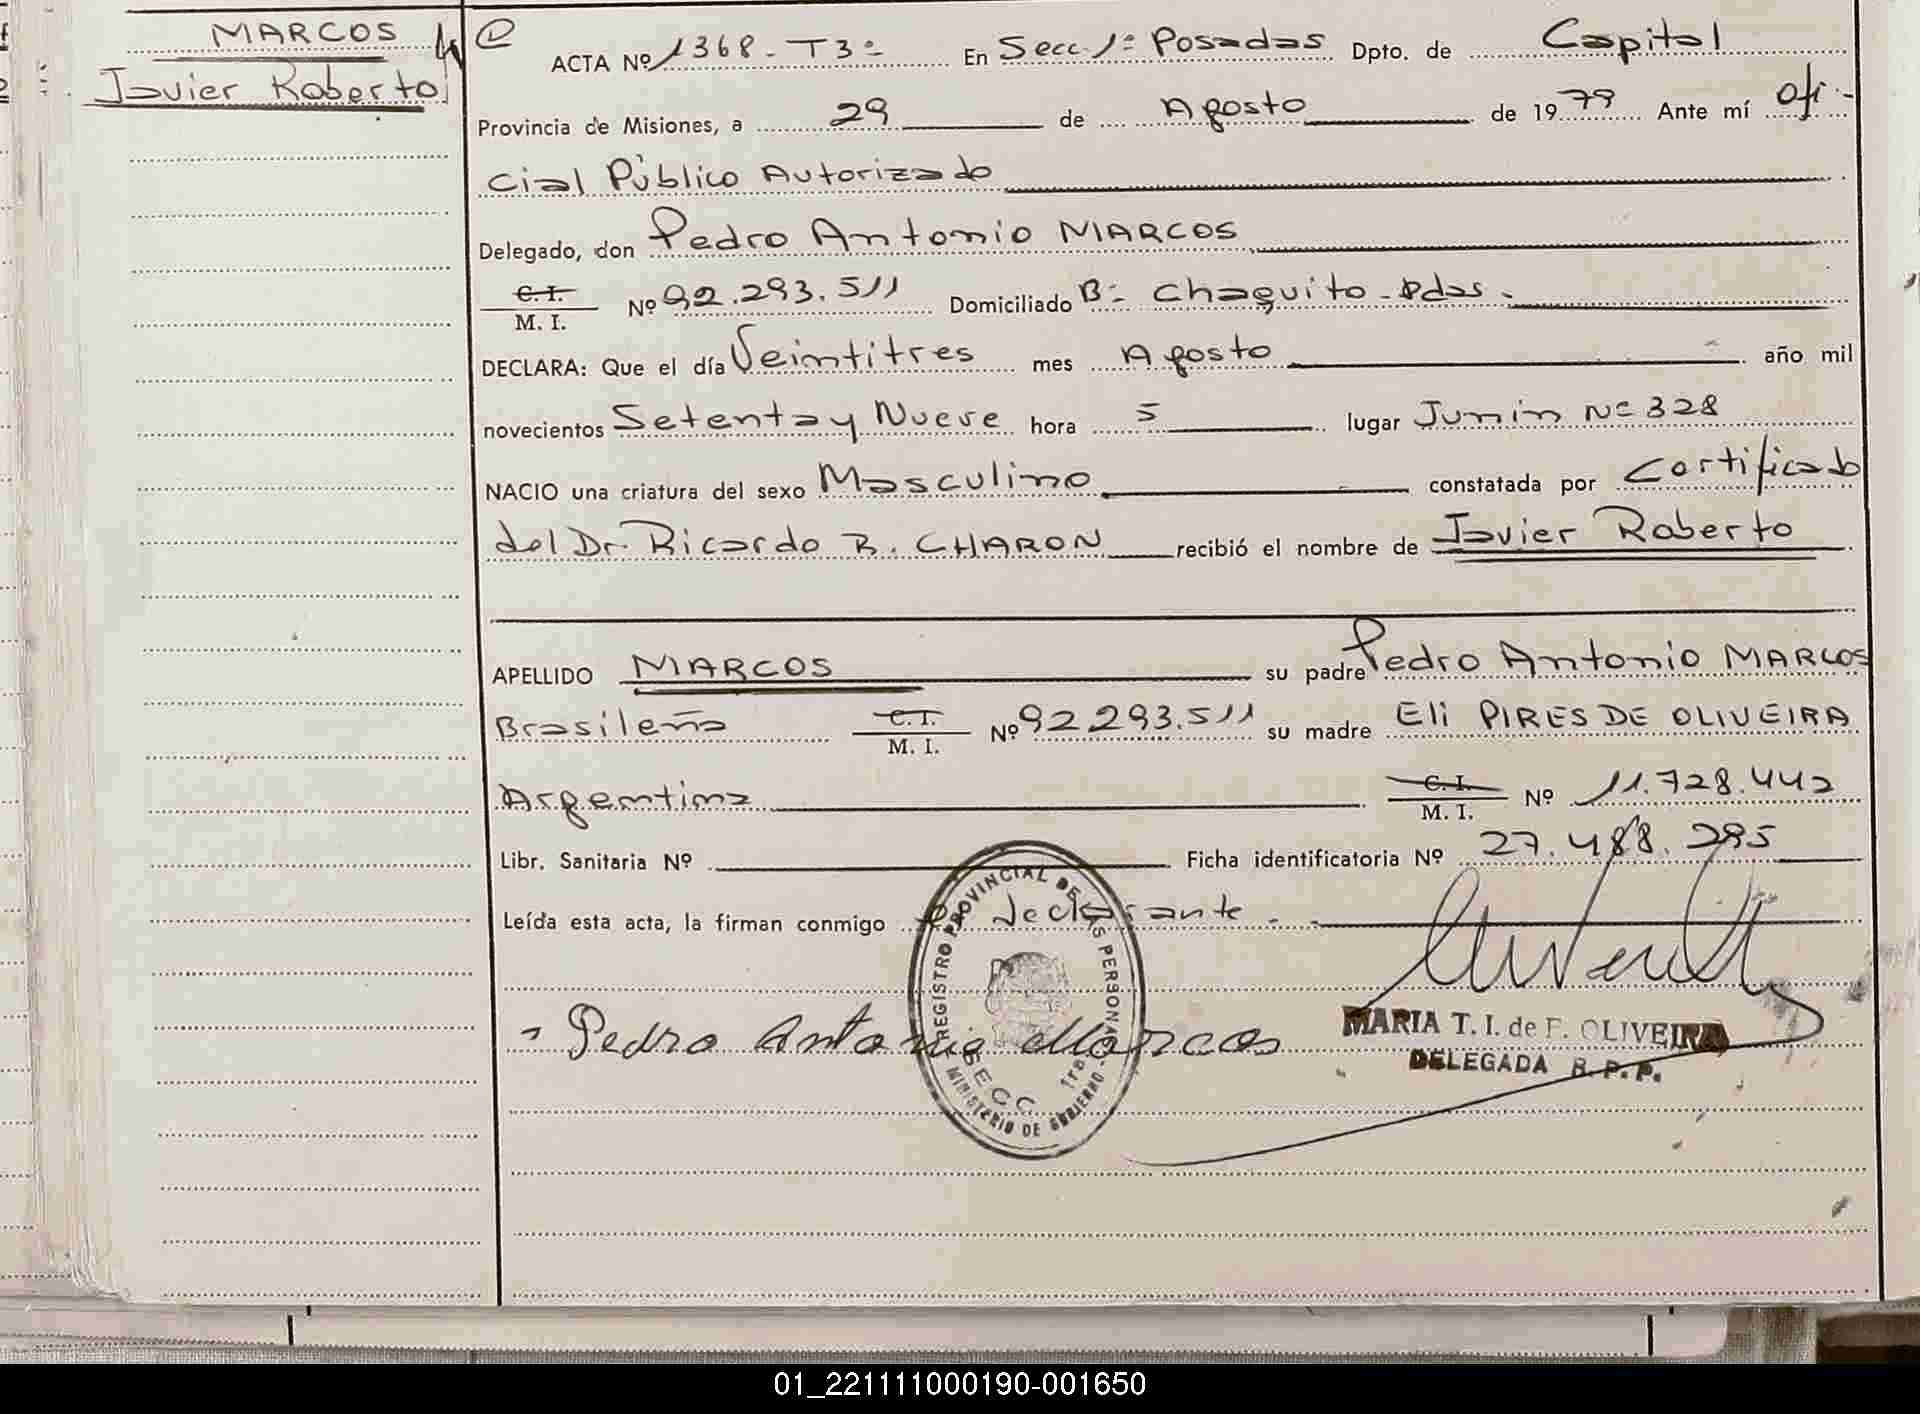 MARCOS
Javier Roberto
ACTA Nº 1368-T3º En Secc. 1º Posadas Dpto. de Capital
Provincia de Misiones, a 29 de Agosto de 1979 Ante mí Ofi-
cial Público Autorizado
Delegado, don Pedro Antonio MARCOS
C. I.
M. I. Nº 92.293.511 Domiciliado Bº Chaquito - Pdas.
DECLARA: Que el día Veintitres mes Agosto año mil
novecientos Setenta y Nueve hora 5 lugar Junin Nº 328
NACIO una criatura del sexo Masculino constatada por Certificado
del Dr. Ricardo R. CHARON recibió el nombre de Javier Roberto
APELLIDO MARCOS su padre Pedro Antonio MARCOS
Brasileña C. I. M. I. Nº 92293.511 su madre Eli PIRES DE OLIVEIRA
Argentina C. I. M. I. Nº 11.728.442
Libr. Sanitaria Nº Ficha identificatoria Nº 27.488.295
Leída esta acta, la firman conmigo el declarante.
Pedro Antonio Marcos
REGISTRO PROVINCIAL DE LAS PERSONAS
MINISTERIO DE GOBIERNO
SECC. 1ra
MARIA T. I. de F. OLIVEIRA
DELEGADA R. P. P.
01_221111000190-001650